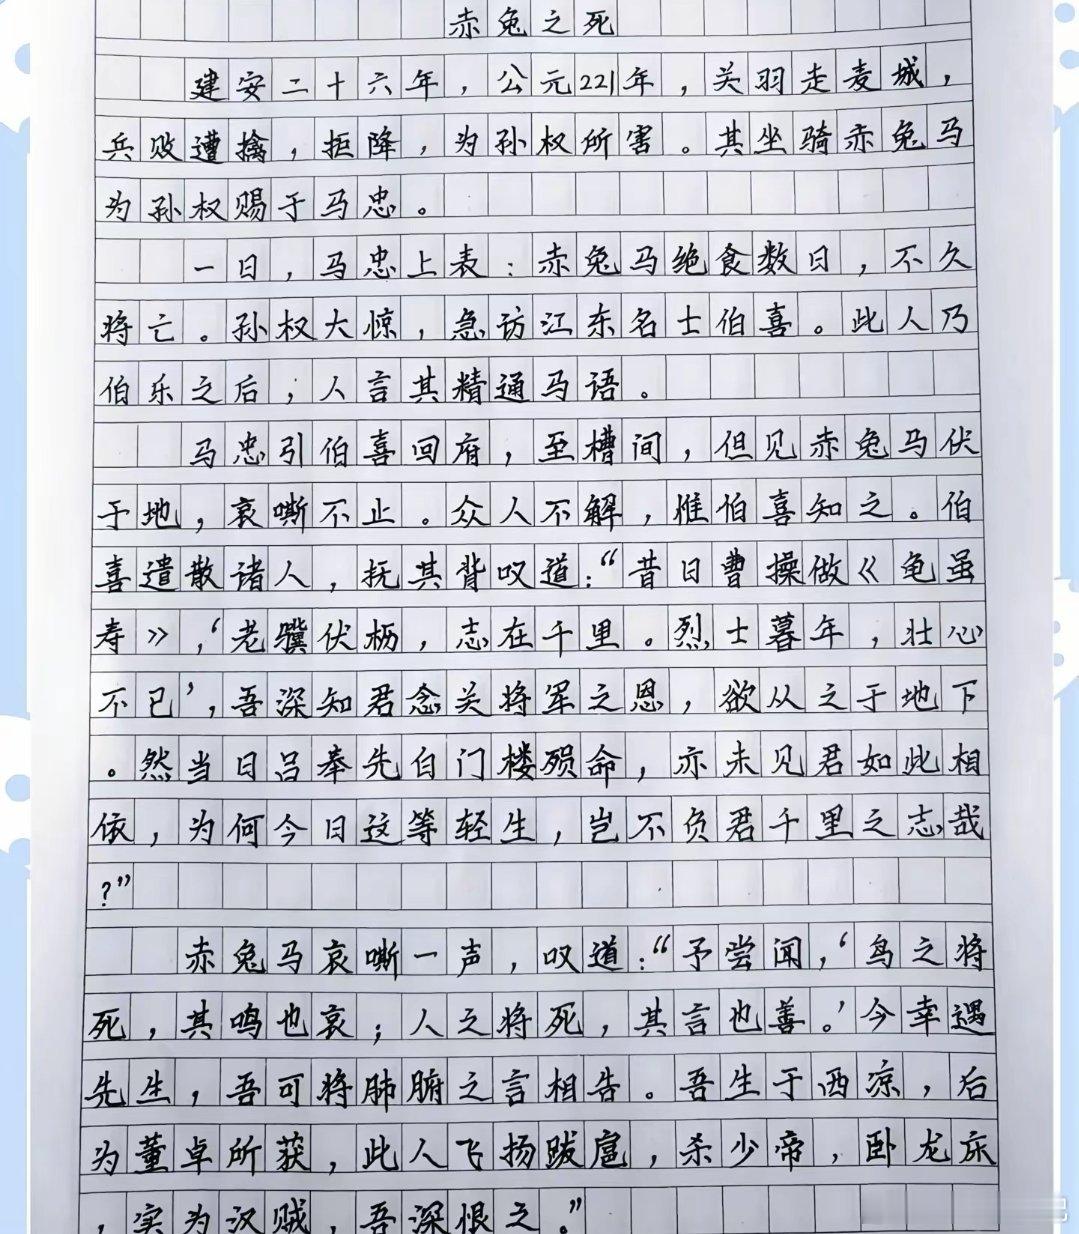 赤兔之死
建安二十六年，公元221年，关羽走麦城，
兵败遭擒，拒降，为孙权所害。其坐骑赤兔马
为孙权赐于马忠。
一日，马忠上表：赤兔马绝食数日，不久
将亡。孙权大惊，急访江东名士伯喜。此人乃
伯乐之后，人言其精通马语。
马忠引伯喜回府，至槽间，但见赤兔马伏
于地，哀嘶不止。众人不解，惟伯喜知之。伯
喜遣散诸人，抚其背叹道：“昔日曹操做《龟虽
寿》，‘老骥伏枥，志在千里。烈士暮年，壮心
不已’，吾深知君念关将军之恩，欲从之于地下
。然当日吕奉先白门楼殒命，亦未见君如此相
依，为何今日这等轻生，岂不负君千里之志哉
？”
赤兔马哀嘶一声，叹道：“予尝闻，‘鸟之将
死，其鸣也哀；人之将死，其言也善。’今幸遇
先生，吾可将肺腑之言相告。吾生于西凉，后
为董卓所获，此人飞扬跋扈，杀少帝，卧龙床
，实为汉贼，吾深恨之。”